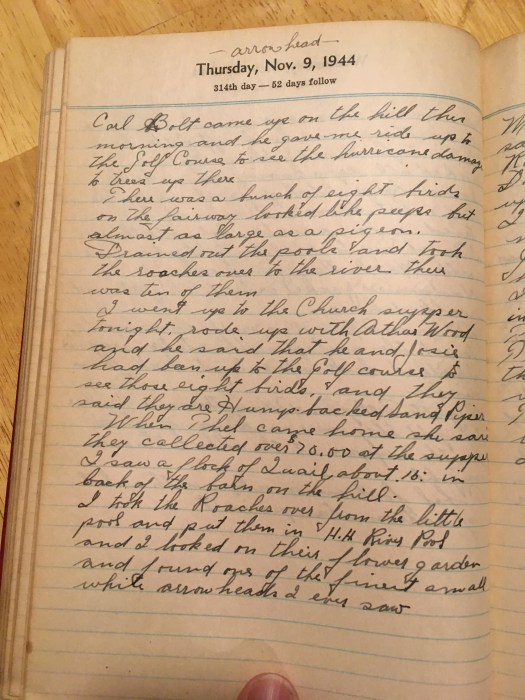 — arrowhead —
Thursday, Nov. 9, 1944
314th day — 52 days follow
Carl Bolt came up on the hill this
morning and he gave me ride up to
the Golf Course to see the hurricane damag
to trees up there
There was a bunch of eight birds
on the fairway looked like peeps but
almost as large as a pigeon.
Drained out the pools and took
the roaches over to the river there
was ten of them
I went up to the Church supper
tonight. rode up with Arthur Wood
and he said that he and Josie
had ban up to the Golf course to
see those eight birds, and they
said they are Humps backed Sand Piper
When Thel came home she said
they collected over $70.00 at the suppe
I saw a flock of Quail about 15: in
back of the barn on the hill.
I took the Roaches over from the little
pool and put them in H.H River Pool
and I looked on their flower garden
and found one of the finest small
white arrowheads I ever saw